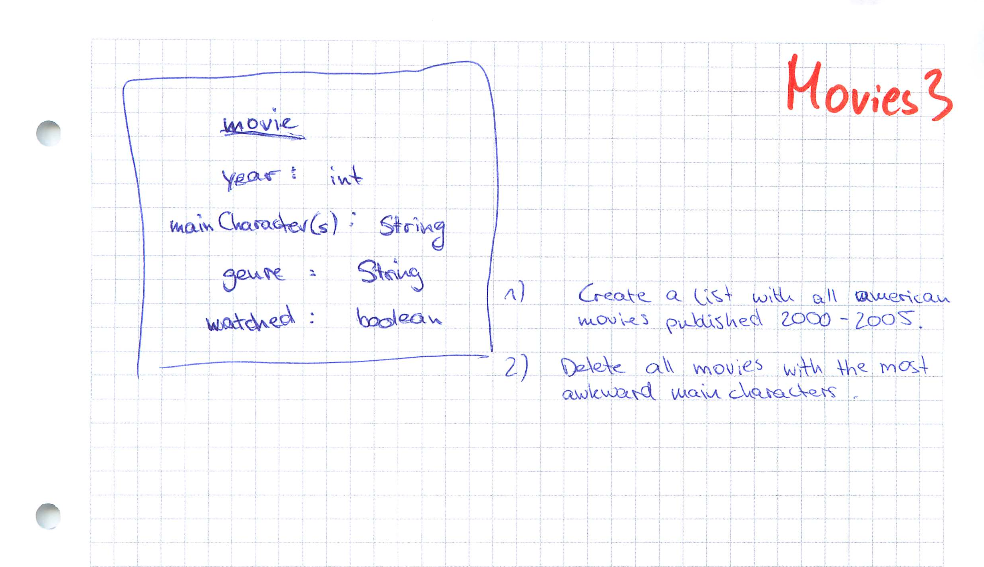 Movies 3
movie
year : int
mainCharacter(s) : String
genre : String
watched : boolean
1) Create a list with all american
movies published 2000-2005.
2) Delete all movies with the most
awkward main characters.